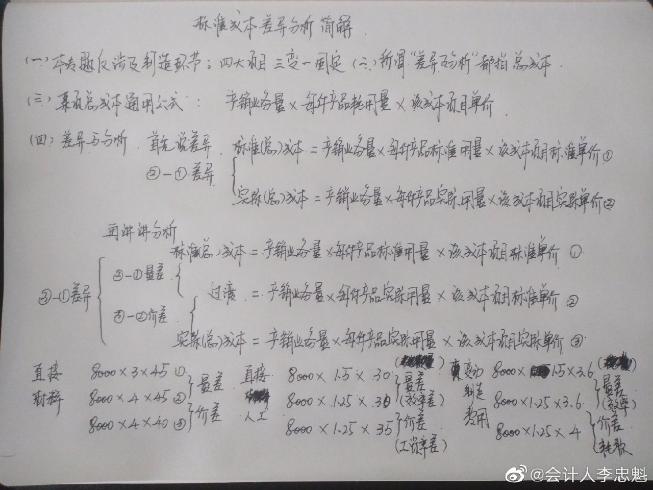 标准成本差异分析 简解
(一)本专题仅涉及制造环节;四大项目 三变一固定 (二)所谓"差异与分析"都指总成本.
(三) 某项总成本通用公式: 产销业务量×每件产品耗用量×该成本项目单价
(四) 差异与分析. 首先说差异 标准(总)成本=产销业务量×每件产品标准用量×该成本项目标准单价①
②-①差异
实际(总)成本=产销业务量×每件产品实际用量×该成本项目实际单价②
再讲讲分析
标准(总)成本=产销业务量×每件产品标准用量×该成本项目标准单价 ①
③-①差异 ②-①量差 过渡 =产销业务量×每件产品实际用量×该成本项目标准单价 ②
③-②价差
实际(总)成本=产销业务量×每件产品实际用量×该成本项目实际单价 ③
直接 8000×3×45① 直接 8000×1.5×30 变动 8000×1.5×3.6
材料 8000×4×45② 量差 人工 8000×1.25×30 量差 (效率差) 制造 8000×1.25×3.6 量差 (效率)
8000×4×40③ 价差 8000×1.25×35 价差 (工资率差) 费用 8000×1.25×4 价差 (耗费)
@会计人李忠魁